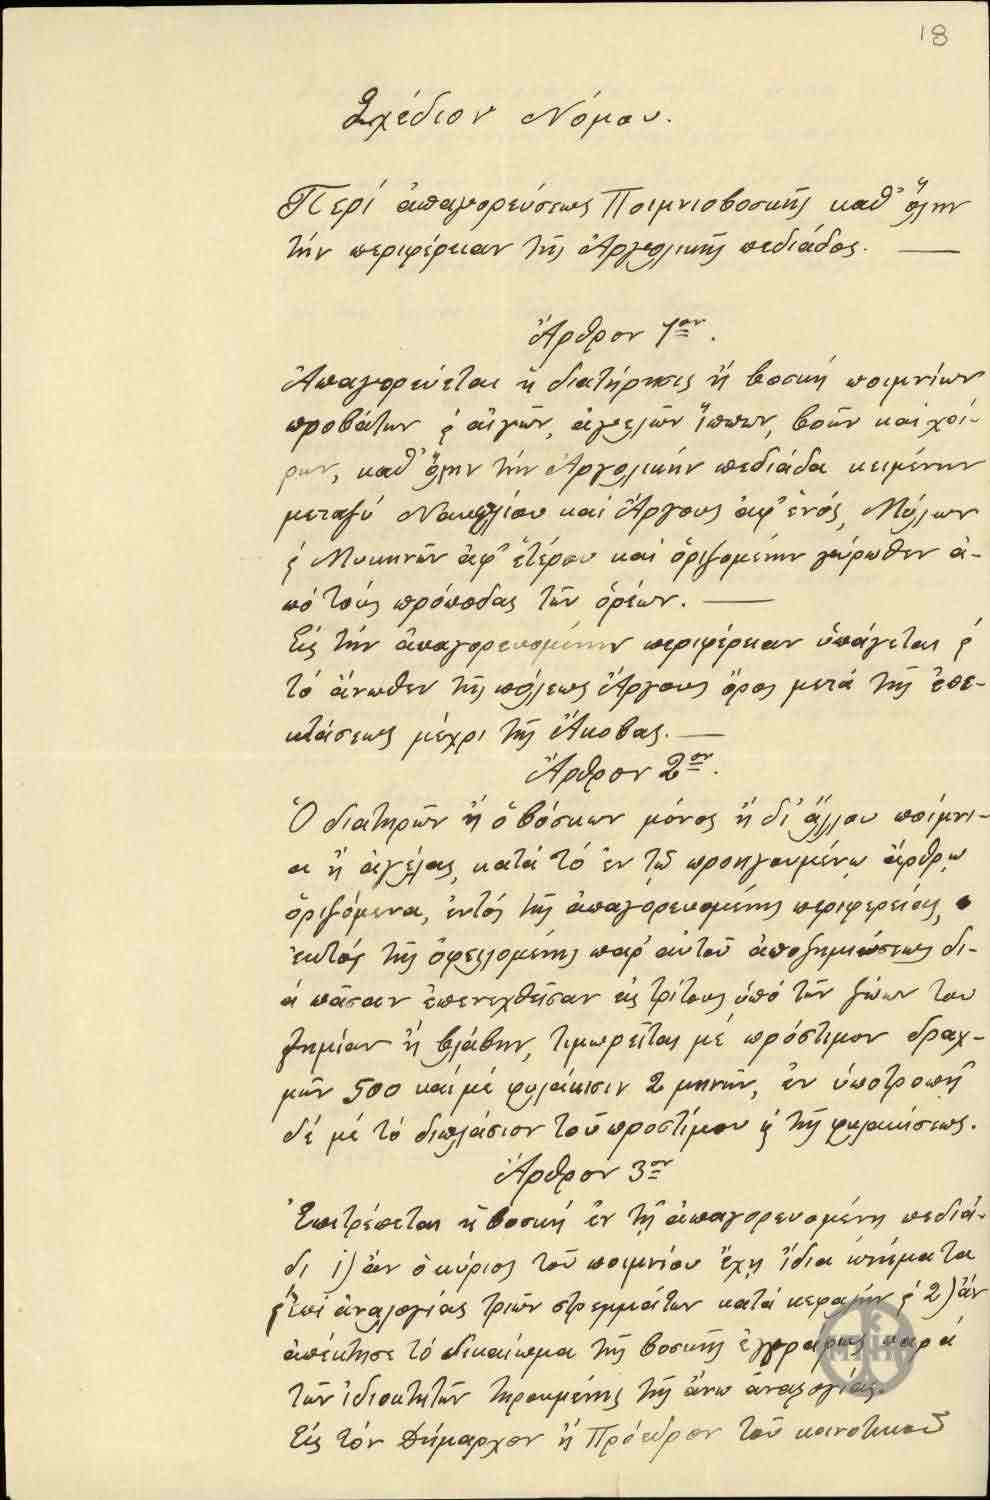 18
Σχέδιον Νόμου.
Περί ἀπαγορεύσεως Ποιμνιοβοσκῆς καθ' ὅλην
τήν περιφέρειαν τῆς Ἀργολικῆς πεδιάδος. —
Ἄρθρον 1ον.
Ἀπαγορεύεται ἡ διατήρησις ἤ βοσκή ποιμνίων
προβάτων ϛ αἰγῶν, ἀγελῶν ἵππων, βοῶν καί χοί-
ρων, καθ' ὅλην τήν Ἀργολικήν πεδιάδα κειμένην
μεταξύ Ναυπλίου καί Ἄργους ἀφ' ἑνός, Μύλων
ϛ Μυκηνῶν ἀφ' ἑτέρου καί ὁριζομένην γύρωθεν ἀ-
πό τούς πρόποδας τῶν ὀρέων. —
Εἰς τήν ἀπαγορευομένην περιφέρειαν ὑπάγεται ϛ
τό ἄνωθεν τῆς πόλεως Ἄργους ὄρος μετά τῆς ἐπε-
κτάσεως μέχρι τῆς Ἄκοβας. —
Ἄρθρον 2ον.
Ὁ διατηρῶν ἤ ὁ βόσκων μόνος ἤ δι' ἄλλου ποίμνι-
α ἤ ἀγέλας, κατά τό ἐν τῷ προηγουμένῳ ἄρθρῳ
ὁριζόμενα, ἐντός τῆς ἀπαγορευομένης περιφερείας,
ἐκτός τῆς ὀφειλομένης παρ' αὐτοῦ ἀποζημιώσεως δι-
ά πᾶσαν ἐπενεχθεῖσαν εἰς τρίτους ὑπό τῶν ζώων του
ζημίαν ἤ βλάβην, τιμωρεῖται μέ πρόστιμον δραχ-
μῶν 500 καί μέ φυλάκισιν 2 μηνῶν, ἐν ὑποτροπῇ
δέ μέ τό διπλάσιον τοῦ προστίμου ϛ τῆς φυλακίσεως.
Ἄρθρον 3ον
Ἐπιτρέπεται ἡ βοσκή ἐν τῇ ἀπαγορευομένῃ πεδιά-
δι 1) ἄν ὁ κύριος τοῦ ποιμνίου ἔχῃ ἴδια κτήματα
ϛ ἐπί ἀναλογίας τριῶν στρεμμάτων κατά κεφαλήν ϛ 2) ἄν
ἀπέκτησε τό δικαίωμα τῆς βοσκῆς ἐγγράφως παρά
τῶν ἰδιοκτητῶν τηρουμένης τῆς ἄνω ἀναλογίας.
Εἰς τόν Δήμαρχον ἤ Πρόεδρον τοῦ κοινοτικοῦ